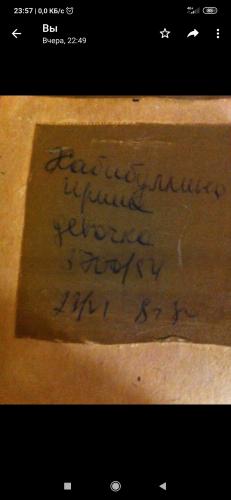 23:57 | 0,0 КБ/с
Вы
Вчера, 22:49
Набибуллина
Ирина
девочка
3700/54